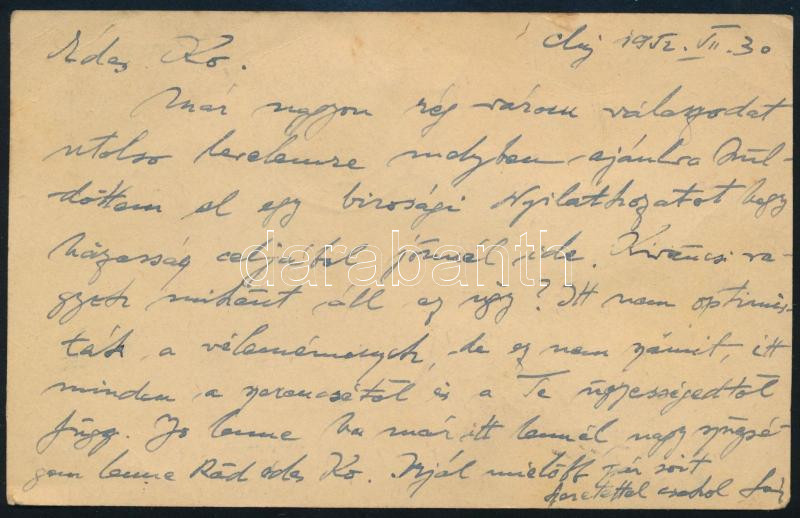 Cluj 1952. VII. 30
Édes Ko.
Már nagyon rég várom válaszodat
utolso levelemre melyben ajánlva kül-
döttem el egy birosági Nyilatkozatot hogy
házasság céljából jönnél ide. Kiváncsi va-
gyok miként áll az ügy? Itt nem optimis-
ták a vélemények, de ez nem számit, itt
minden a szerencsétöl és a Te ügyességedtöl
függ. Jo lenne ha már itt lennél nagy szüksé-
gem lenne Rád édes Ko. Irjál mielöbb pár sort
Szeretettel csokol
darabanth